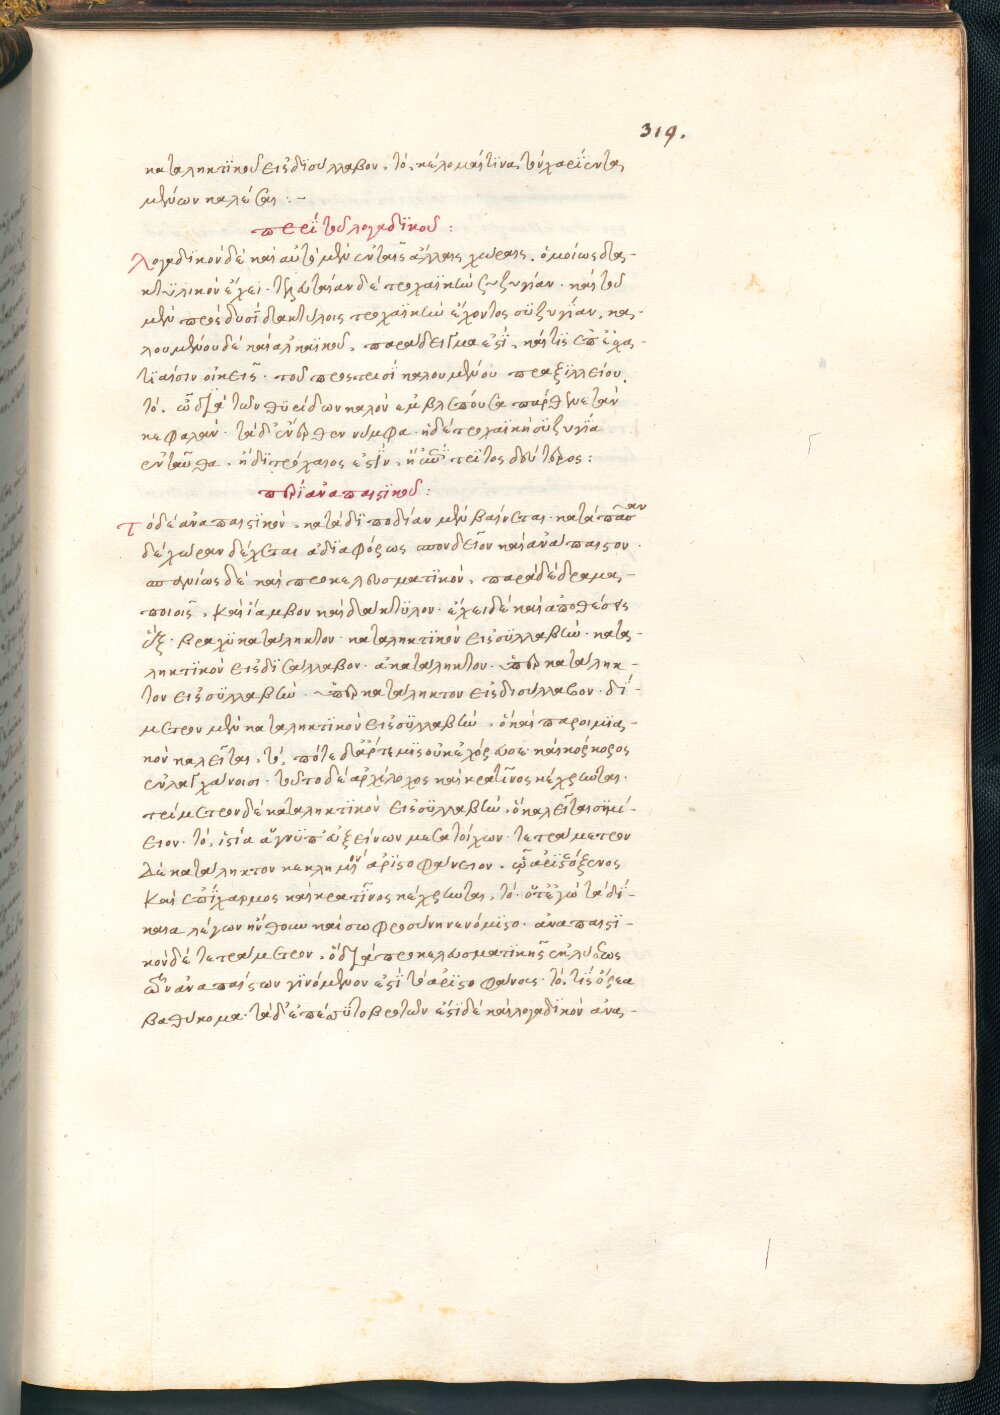 319.
καταληκτϊκοῦ εἰς δϊσύλλαβον. τὸ, κέλομαί τϊνα τὸν χαρίεντα
μένωνα καλέσαι :-
περὶ τοῦ λογαδϊκοῦ :
λογαδϊκὸν δὲ καὶ αὐτὸ μὲν ἐν ταῖς ἄλλαις χώραις. ὁμοίως δα-
κτϋλικὸν ἔχει. τελευταίαν δὲ τροχαϊκὴν συζυγίαν. καὶ τοῦ
μὲν πρὸς δυσὶ δακτύλοις τροχαϊκὴν ἔχοντος σϋζυγίαν, κα-
λουμένου δὲ καὶ ἀλκαϊκοῦ, παράδειγμα ἐστὶ, καί τϊς ἐπ' ἐσχα-
τϊαῖσιν οἴκεις. τοῦ πρὸς τρισὶ καλουμένου πραξϊλλείου.
τὸ. ὦ διὰ τῶν θϋρίδων καλὸν ἐμβλέποισα παρθένε τὰν
κεφαλὰν. τὰ δ' ἔνερθεν νύμφα. ἡ δὲ τροχαϊκὴ σϋζυγϊα
ἐνταῦθα. ἢ δϊτρόχαιος ἐστϊν, ἢ τρϊτος δεύτερος :
περὶ ἀναπαιστϊκοῦ :
τὸ δὲ ἀναπαιστϊκὸν, κατὰ δϊποδίαν μὲν βαίνεται. κατὰ πᾶσαν
δὲ χώραν δέχεται ἀδϊαφόρως σπονδεῖον καὶ ἀνάπαιστον.
σπανίως δὲ καὶ προκελευσματϊκὸν, παρὰ δὲ δραμα-
ποιοῖς, καὶ ἴαμβον καὶ δάκτϋλον. ἔχει δὲ καὶ ἀποθέσεις
ἓξ. βραχϋκατάληκτον. καταληκτϊκὸν εἰς σϋλλαβὴν. κατα-
ληκτϊκὸν εἰς δϊσύλλαβον. ἀκατάληκτον. ὑπερκατάληκ-
τον εἰς σϋλλαβὴν. ὑπερκατάληκτον εἰς δισύλλαβον. δί-
μετρον μὲν καταληκτϊκὸν εἰς σϋλλαβὴν, ὃ καὶ παροιμϊα-
κὸν καλεῖται, τὸ, πότε δ' ἄρτεμϊς οὐκ ἐχόρευσε.
ἐν λα χάνοισι. τοῦτο δὲ ἀρχίλοχος καὶ κρατῖνος κέχρηται.
τρίμετρον δὲ καταληκτϊκὸν εἰς σϋλλαβὴν, ὃ καλεῖται σϊμί-
ειον. τὸ, ἱστία ἁγνϋ π' ἀπ' εὐξείνων μέσα τοίχων. τετράμετρον
δὲ καταληκτον κεκλημένον ἀρϊστοφάνειον, ᾧ ἀρϊστόξενος
καὶ ἐπίχαρμος καὶ κρατῖνος κέχρηται, τό. ὅτ' ἐγὼ τὰ δί-
καια λέγων ἤνθουν καὶ σωφροσύνη νενόμϊστο. ἀναπαιστϊ-
κὸν δὲ τετράμετρον, ὃ διὰ προκελευσματϊκῆς ἐκλύσεως
τῶν ἀναπαίστων γϊνόμενον ἐστϊ τὸ ἀρϊστοφάνειον. τὸ, τίς ὄρεα
βαθύκομα. τάδ' ἐπέσϋτο βροτῶν ἔστι δὲ καὶ λογαδϊκὸν ἀνα-